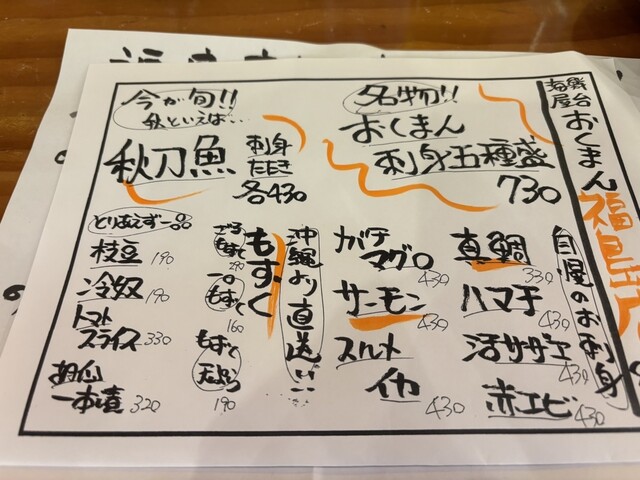 海鮮屋台 おくまん 福島店
名物!!
おくまん
刺身五種盛
730
今が旬!!
秋といえば…
秋刀魚
刺身
たたき
各430
自慢のお刺身
真鯛
330
ハマチ
430
活サザエ
430
赤エビ
430
ガチ
マグロ
430
サーモン
430
スルメ
イカ
430
沖縄より直送!!
もずく
ざるもずく
290
一口もずく
160
もずく天ぷら
190
とりあえず一品
枝豆 190
冷奴 190
トマト
スライス 330
胡瓜
一本漬 320